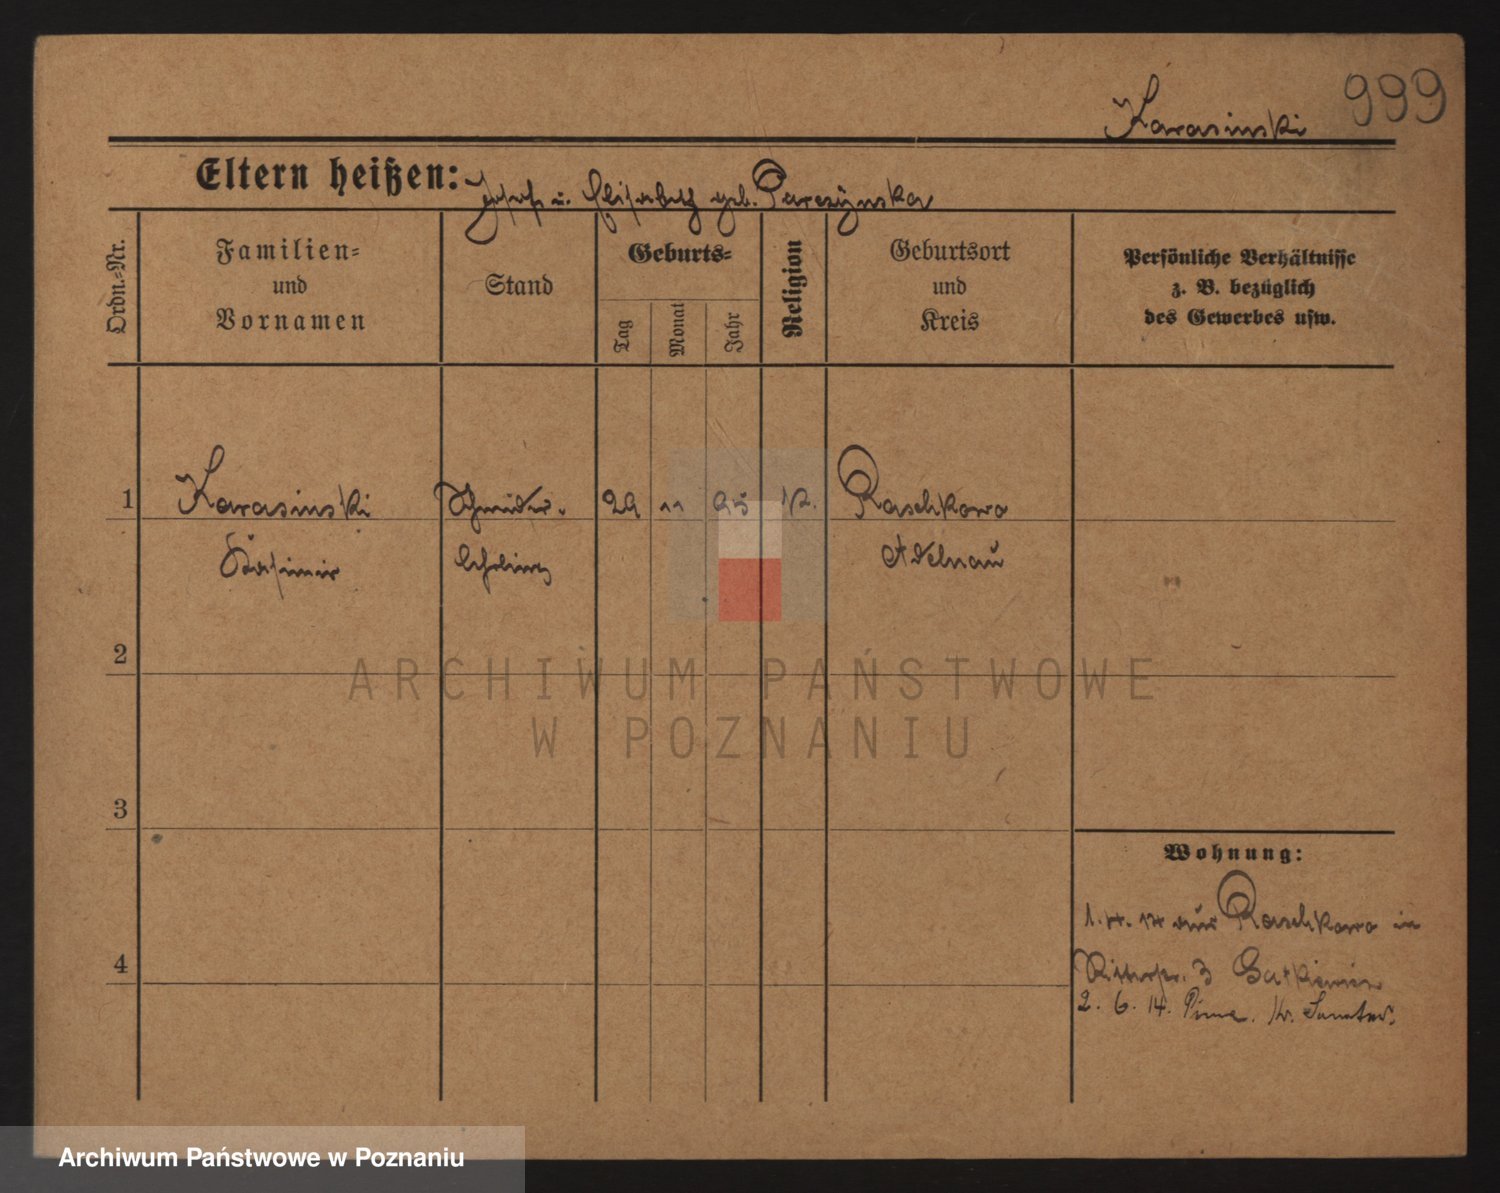 999
Karasinski
Eltern heißen: Josef u. Elisabeth geb. Parczynska
Ordn.-Nr.
Familien-
und
Vornamen
Stand
Geburts-
Tag
Monat
Jahr
Religion
Geburtsort
und
Kreis
Persönliche Verhältnisse
z. B. bezüglich
des Gewerbes usw.
1 Karasinski Schneider- 29 11 95 K. Raschkowo
Kasimir lehrling Adelnau
2
3
4
Wohnung:
1. 4. 14 aus Raschkowo in
Ritterstr. 3
2. 6. 14. Pinne. Kr. Samter.
ARCHIWUM PAŃSTWOWE
W POZNANIU
Archiwum Państwowe w Poznaniu